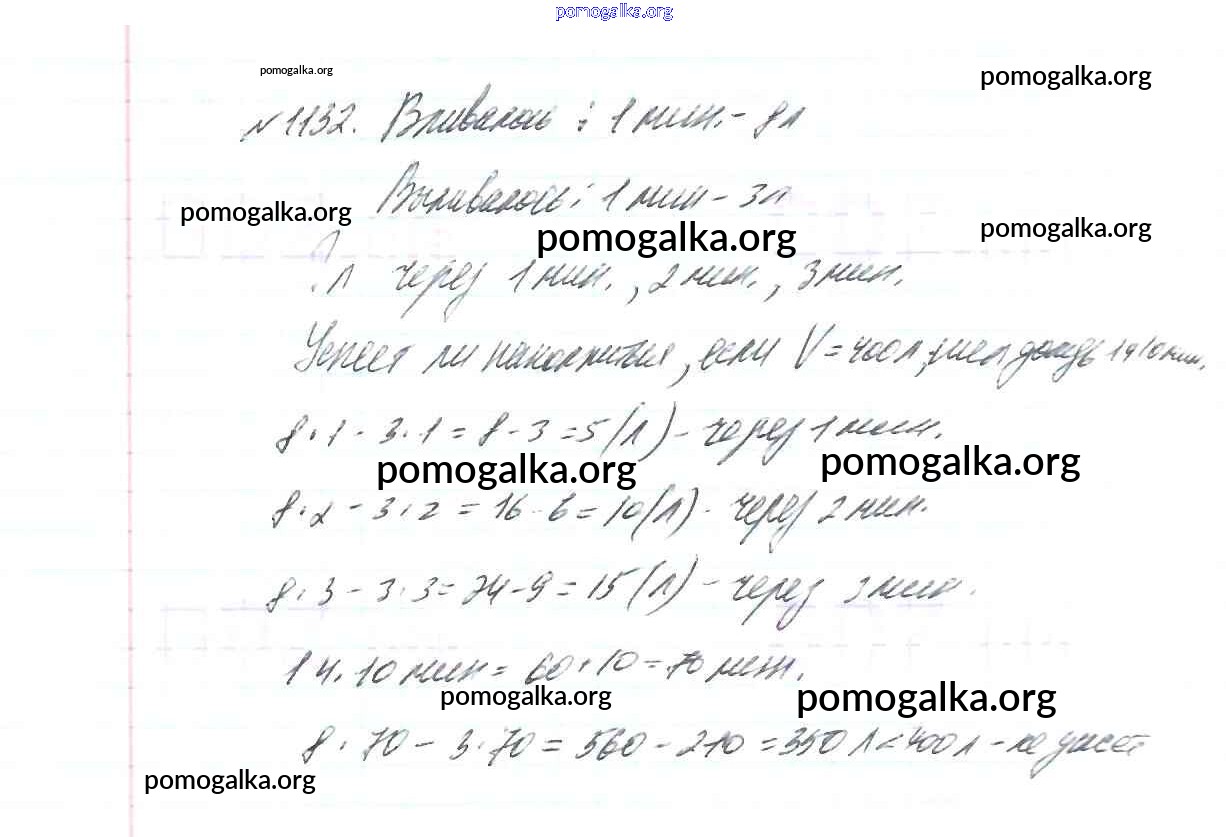 pomogalka.org
pomogalka.org
pomogalka.org
№1132. Вливалось : 1 мин. - 8 л
Выливалось: 1 мин - 3 л
pomogalka.org
pomogalka.org
pomogalka.org
? л через 1 мин., 2 мин., 3 мин.
Успеет ли наполниться, если V = 400 л, шел дождь 1 ч 10 мин.
8 · 1 - 3 · 1 = 8 - 3 = 5 (л) - через 1 мин.
pomogalka.org
pomogalka.org
8 · 2 - 3 · 2 = 16 - 6 = 10 (л) - через 2 мин.
8 · 3 - 3 · 3 = 24 - 9 = 15 (л) - через 3 мин.
1 ч. 10 мин = 60 + 10 = 70 мин.
pomogalka.org
pomogalka.org
8 · 70 - 3 · 70 = 560 - 210 = 350 л < 400 л - не успеет
pomogalka.org